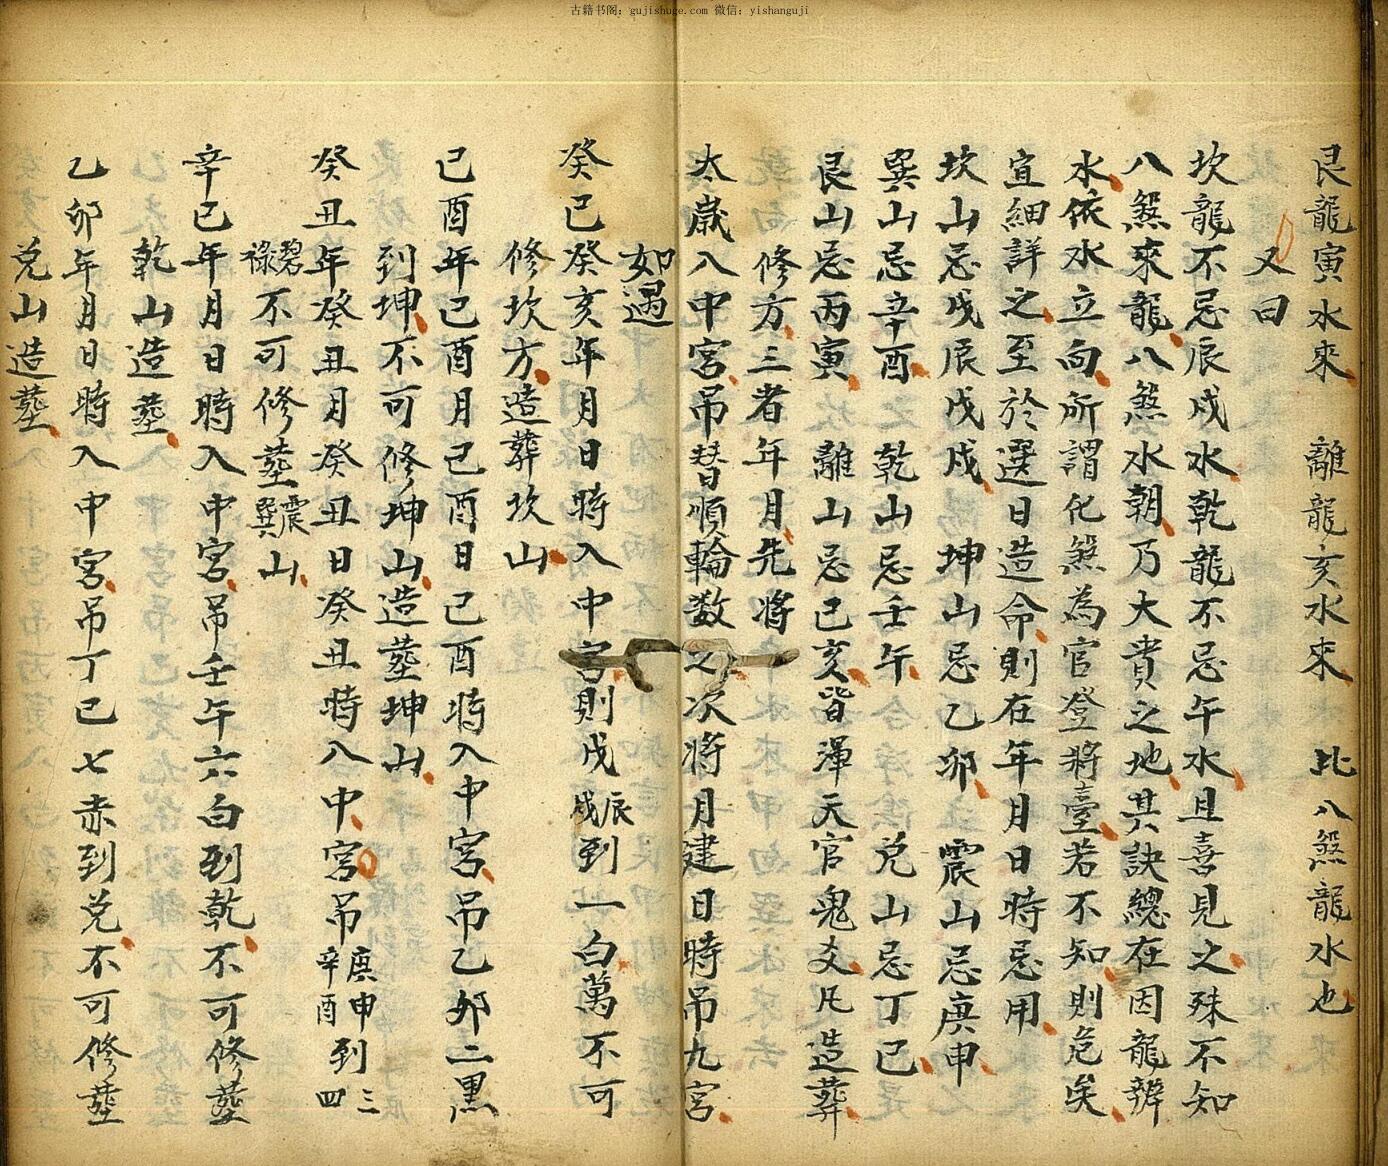 古籍书阁：gujishuge.com 微信：yishanguji
艮龍寅水來 離龍亥水來 此八煞龍水也
又曰
坎龍不忌辰戌水乾龍不忌午水且喜見之殊不知
八煞來龍八煞水朝乃大貴之地其訣總在因龍辨
水依水立向所謂化煞為官登將臺若不知則危矣
宜細詳之至於選日造命則在年月日時忌用
坎山忌戊辰戊戌 坤山忌乙卯 震山忌庚申
巽山忌辛酉 乾山忌壬午 兌山忌丁巳
艮山忌丙寅 離山忌己亥皆渾天官鬼爻凡造葬
修方三者年月先將
太歲入中宮吊替順輪数之次將月建日時吊九宮
如遇
癸巳癸亥年月日時入中宮則戊辰戊戌到一白萬不可
修坎方造葬坎山
己酉年己酉月己酉日己酉時入中宮吊乙卯二黑
到坤不可修坤山造塟坤山
癸丑年癸丑月癸丑日癸丑時入中宮吊庚申辛酉到三四
碧祿不可修塟震巽山
辛巳年月日時入中宮吊壬午六白到乾不可修塟
乾山造塟
乙卯年月日時入中宮吊丁巳七赤到兌不可修塟
兌山造塟